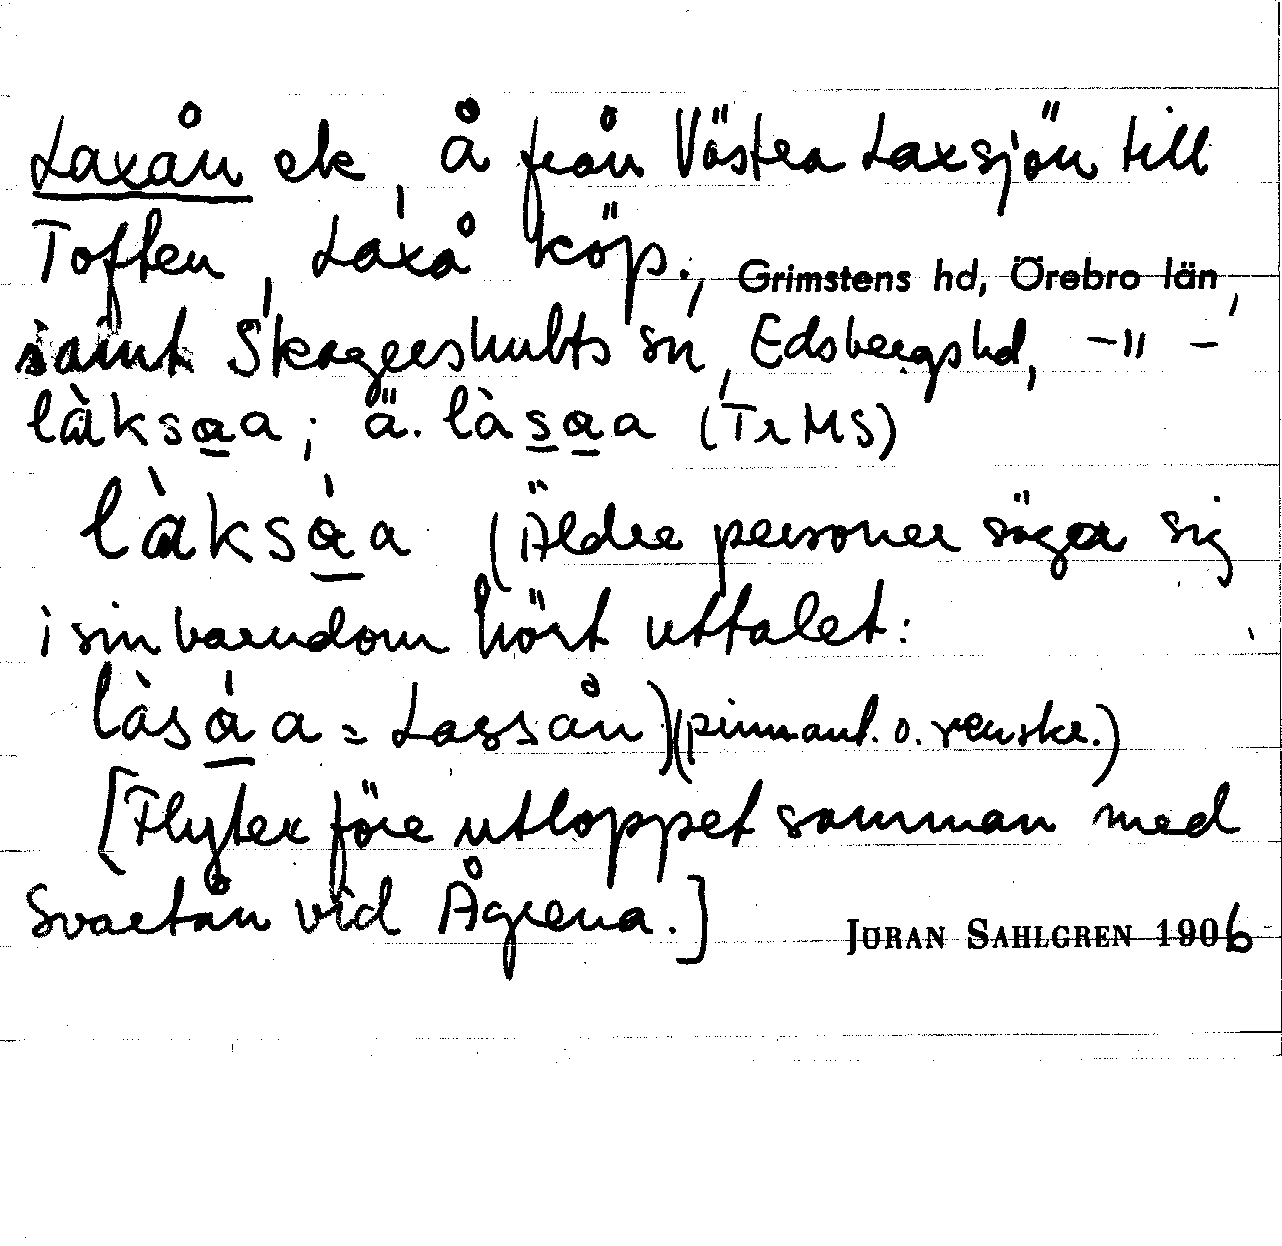 Laxån ek, å från Västra Laxsjön till
Toften, Laxå köp., Grimstens hd, Örebro län,
samt Skagershults sn, Edsbergs hd, -"-
làksa̲a; ä. làs̲a̲a (Tr MS)
làksa̲̍a (Äldre personer säga sig
i sin barndom hört uttalet:
làsa̲̍a = Lassån) (pinnant. o. renskr.)
[Flyter före utloppet samman med
Svartån vid Ågrena.] JÖRAN SAHLGREN 1906